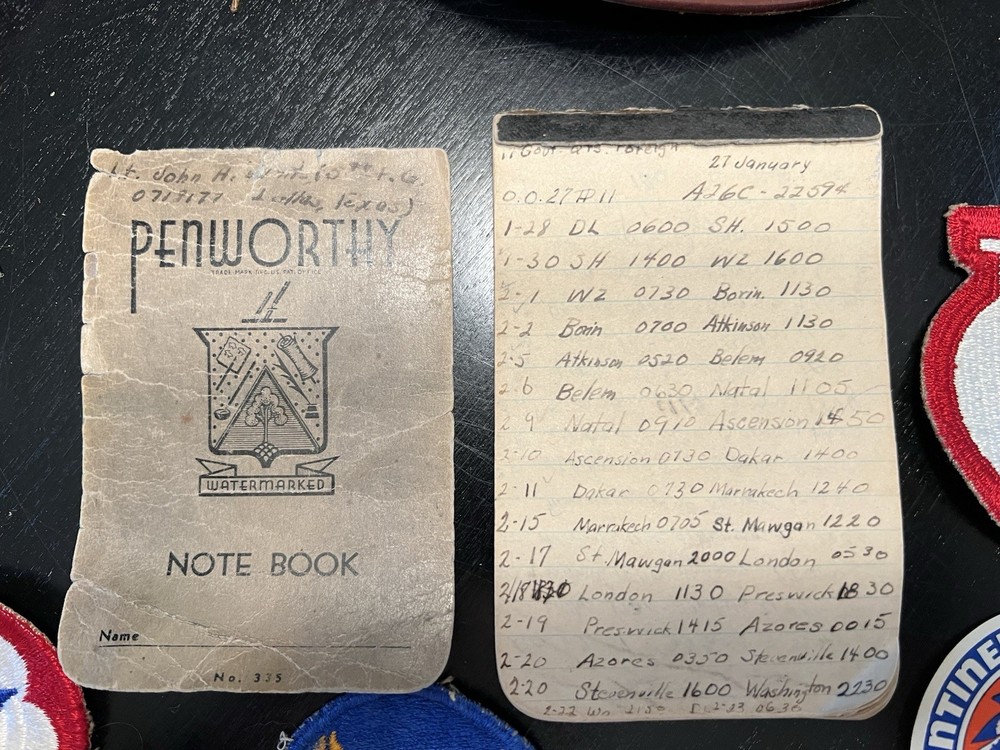 Lt. John H.
0719177 Dallas, Texas)
PENWORTHY
TRADE MARK REG. U.S. PAT. OFFICE
WATERMARKED
NOTE BOOK
Name
No. 335
Foreign
27 January
O.O. 27 # 11 A26C - 22594
1-28 DL 0600 SH. 1500
1-30 SH 1400 WZ 1600
2-1 WZ 0730 Borin. 1130
2-2 Borin 0700 Atkinson 1130
2-5 Atkinson 0520 Belem 0920
2-6 Belem 0630 Natal 1105
2-9 Natal 0910 Ascension 1450
2-10 Ascension 0730 Dakar 1400
2-11 Dakar 0730 Marrakech 1240
2-15 Marrakech 0705 St. Mawgan 1220
2-17 St. Mawgan 2000 London 0530
2/18 London 1130 Preswick 1830
2-19 Preswick 1415 Azores 0015
2-20 Azores 0350 Stevenville 1400
2-20 Stevenville 1600 Washington 2230
2-22 Wn 2130 2-23 0630
NTINE